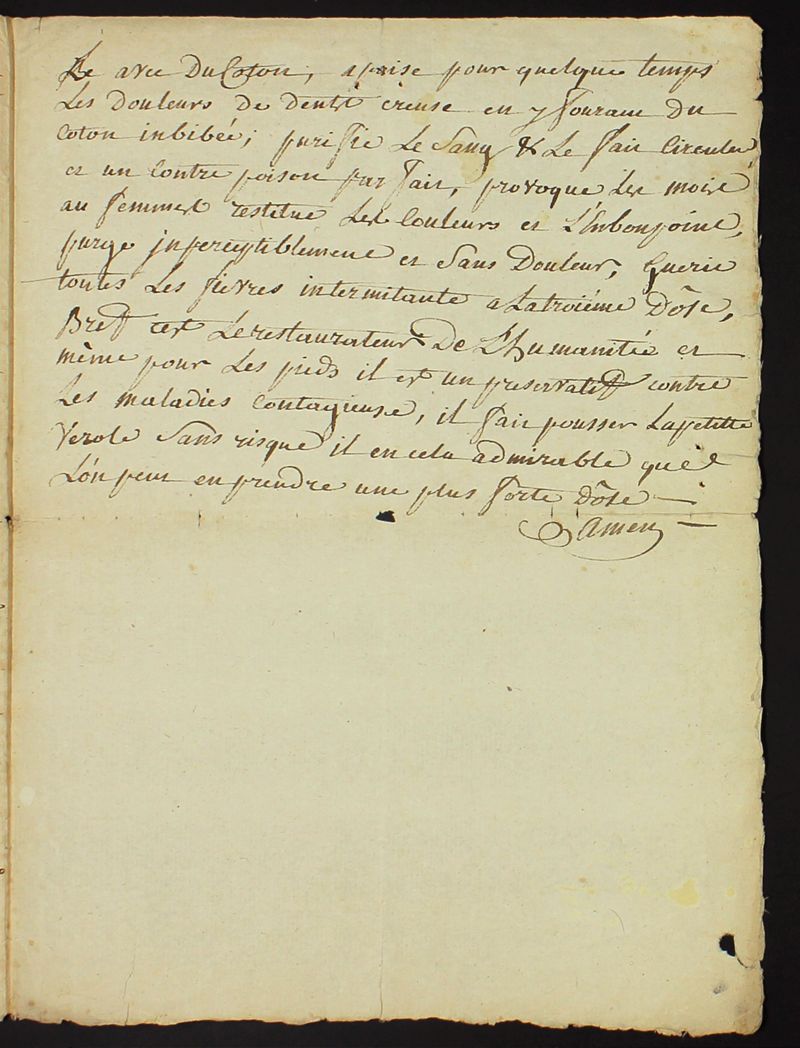 Le avec Du Coton, apaise pour quelque temps
Les Douleurs de dents creuse en y fourant du
Coton inbibée; purifie Le Sang & Le fait Circuler
et un Contre poison parfait, provoque les mois
au femmes restitue Les Couleurs et L'Enbonpoint,
purge inperceptiblement et Sans Douleur, Guerie
toutes Les fievres intermitante a La troiéme Dôse,
Bref cest Le restaurateur De L'humanitée et
même pour Les pieds il est un preservatif contre
Les maladies Contagieuse, il fait pousser La petitte
Verole Sans risque il en cela admirable que
L'on peut en prendre une plus forte Dôse —
Amen —